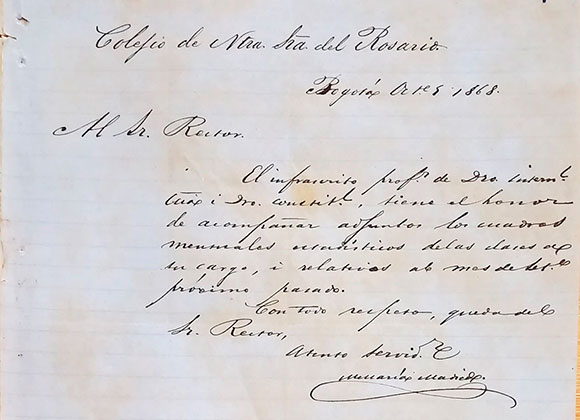 Colegio de Ntra. Sra. del Rosario.
Bogotá Oct.e 5 1868.
Al Sr. Rector.
El infrascrito prof.r de Dro. intern.l
i Dro. constit.l, tiene el honor
de acompañar adjuntos los cuadros
mensuales estadísticos de las clases de
su cargo, i relativos al mes de
próximo pasado.
Con todo respeto, queda del
Sr. Rector,
Atento servid.r